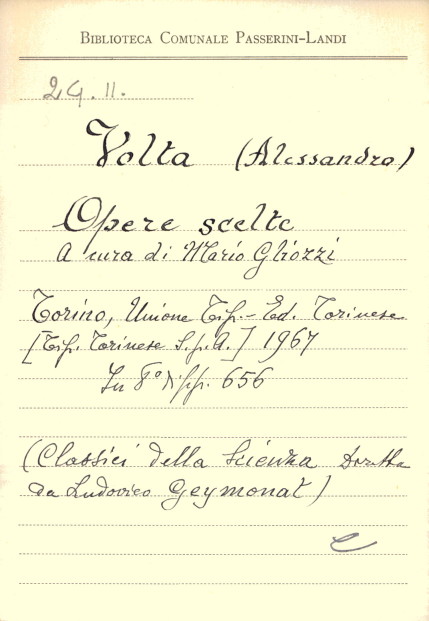 BIBLIOTECA COMUNALE PASSERINI-LANDI
2G.11.
Volta (Alessandro)
Opere scelte
A cura di Mario Gliozzi
Torino, Unione Tip.-Ed. Torinese
[Tip. Torinese S.p.A.] 1967
In 8° di pp. 656
(Classici della Scienza diretta
da Ludovico Geymonat)